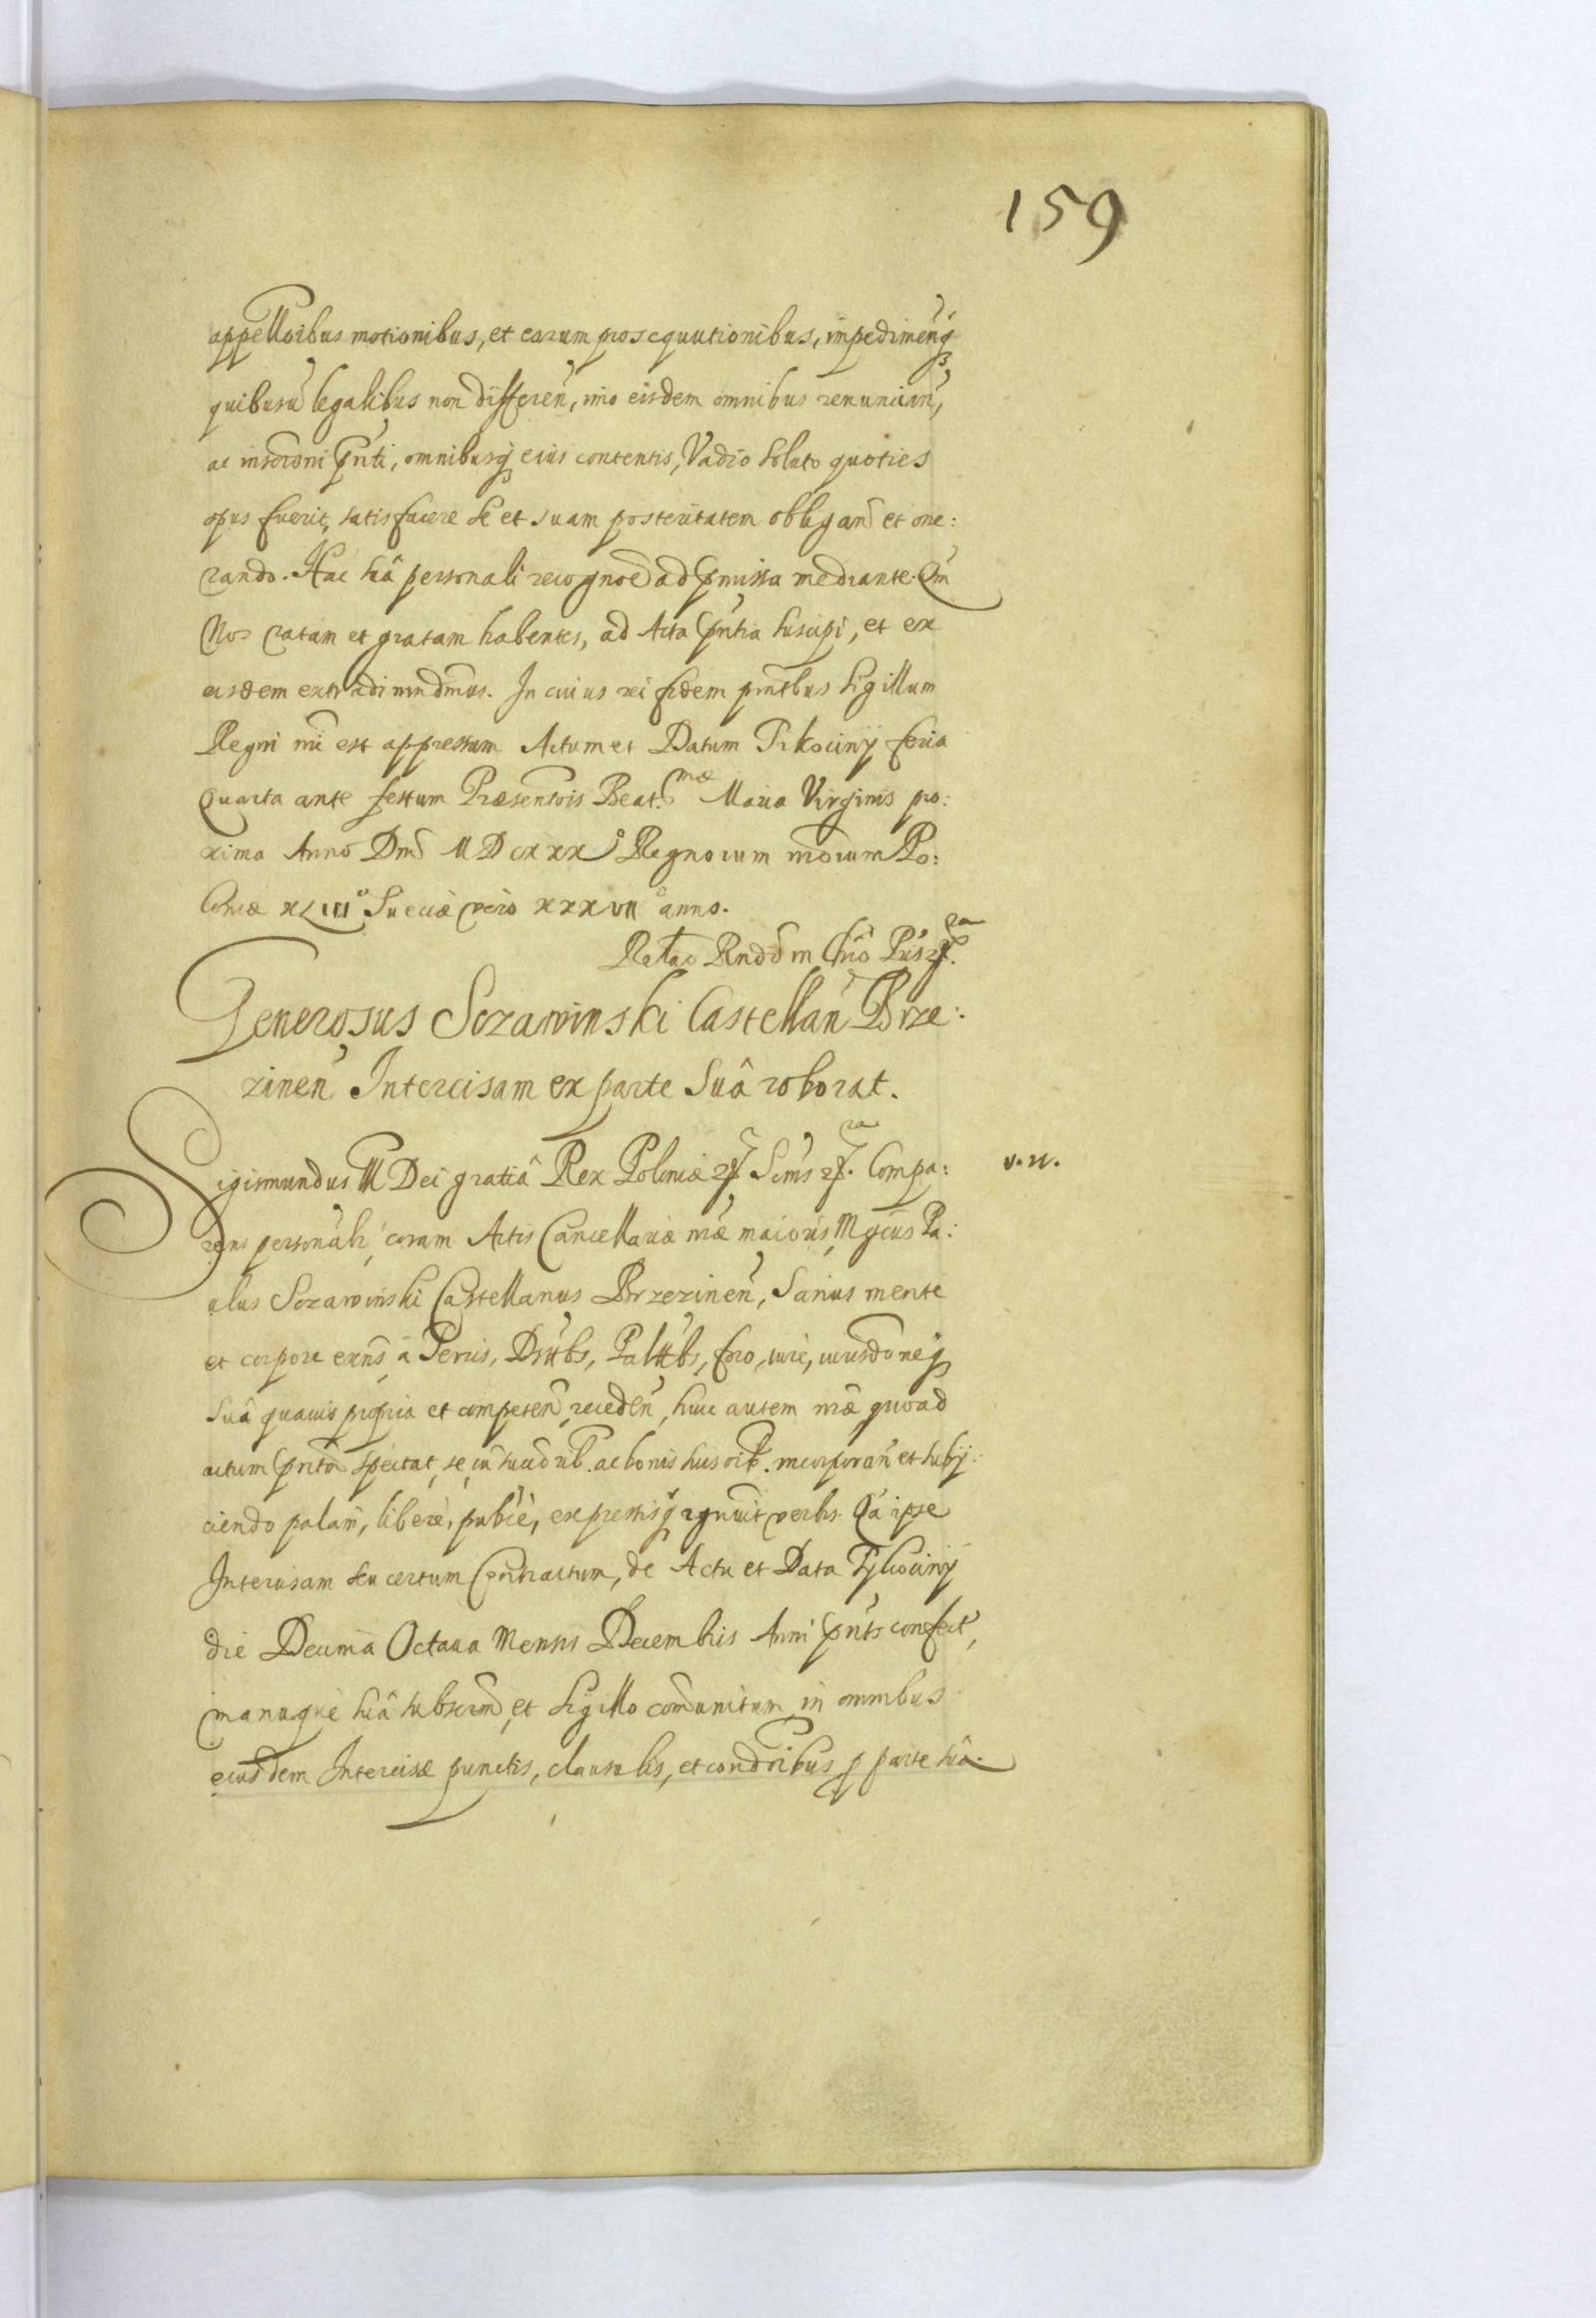 159
appellõibus motionibus, et earum prosequutionibus, impedimenq̃
quibusũ legalibus non differeñ, imo eisdem omnibus renunciañ,
ac inscrõni p̃nti, omnibusq eius contentis, Vadio soluto quoties
opus fuerit, satisfacere se et suam posteritatem obligand̃ et one:
rando. Hac suâ personali recognoẽ ad p̃missa mediante. Qm̃
Nos ratam et gratam habentes, ad Acta p̃ntia suscipi, et ex
eisdem extradi mñdmus. In cuius rei fidem pñtibus Sigillum
Regni nr̃i est appressum Actum et Datum Tikociny feria
Quarta ante festum Præsentõis Beat.mæ Maria Virginis pro:
xima Anno Dn̄i MDCXXXº Regnorum nr̃orum Po:
loniæ XLIIIº Sueciæ vero XXXVIIº anno.
Re͠lao Rnddm Chrõ Pr̃is ꝛꝭ.ra
Generosus Sczawinski Castellañ Brze:
zineñ Intercisam ex parte Suâ roborat.
Sigismundus III Dei gratiâ Rex Poloniæ ꝛꝭ Sẽns ꝛꝭ.ra Compa: v. n.
rens personaĺr, coram Actis Cancellariæ nr̃æ maioris, Mgcus Pa:
ulus Sczawinski Castellanus Brzezineñ, Sanus mente
et corpore exñs, à Terris, Dr̃tbs, Palt̃tbs, foro, iure, iurisdoneq
suâ quauis propria et competeñ recedeñ, huic autem nr̃æ quoad
actum p̃ntem spectat, se cũ succ̃orib. ac bonis suis oĩb. incorporañ et subij:
ciendo palam, liberè, publ̃cè, expressisq rgnuit verbis. Qa ipse
Intercisam seu certum Contractum, de Actu et Data Tykociny
die Decima Octaua Mensis Decembris Anni p̃ntis confect̃,
manuque suâ subscrip̃t, et Sigillo com̃unitum, in omnibus
eiusdem Intercisæ punctis, clausulis, et condõibus ꝓ parte suâ.